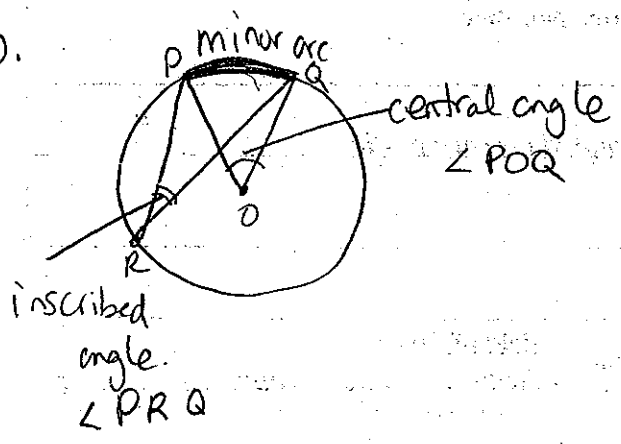 ).
P minor arc Q
central angle
∠ POQ
O
R
inscribed
angle.
∠ PRQ